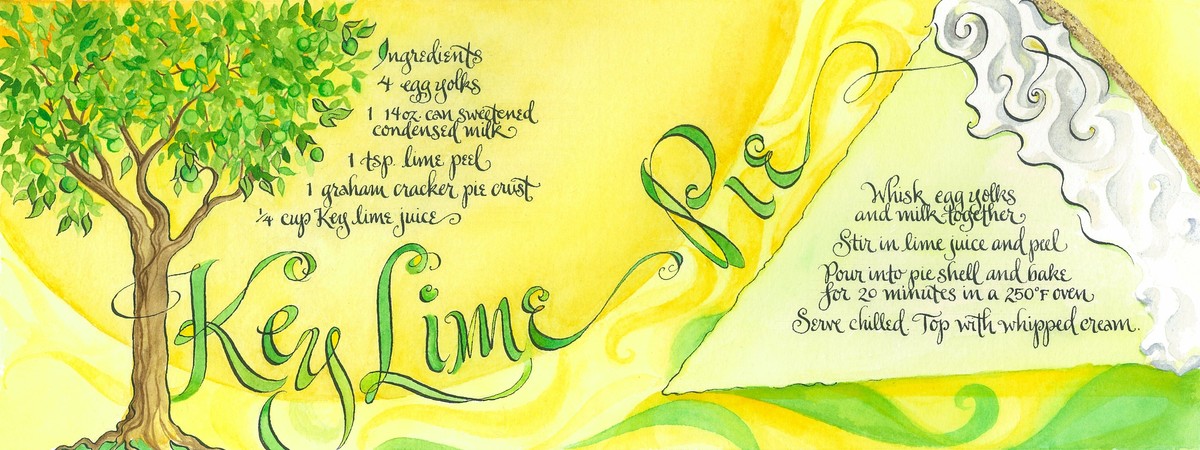 Ingredients
4 egg yolks
1 14oz. can sweetened
condensed milk
1 tsp. lime peel
1 graham cracker pie crust
¼ cup Key lime juice
Key Lime Pie
Whisk egg yolks
and milk together
Stir in lime juice and peel
Pour into pie shell and bake
for 20 minutes in a 250°F oven
Serve chilled. Top with whipped cream.